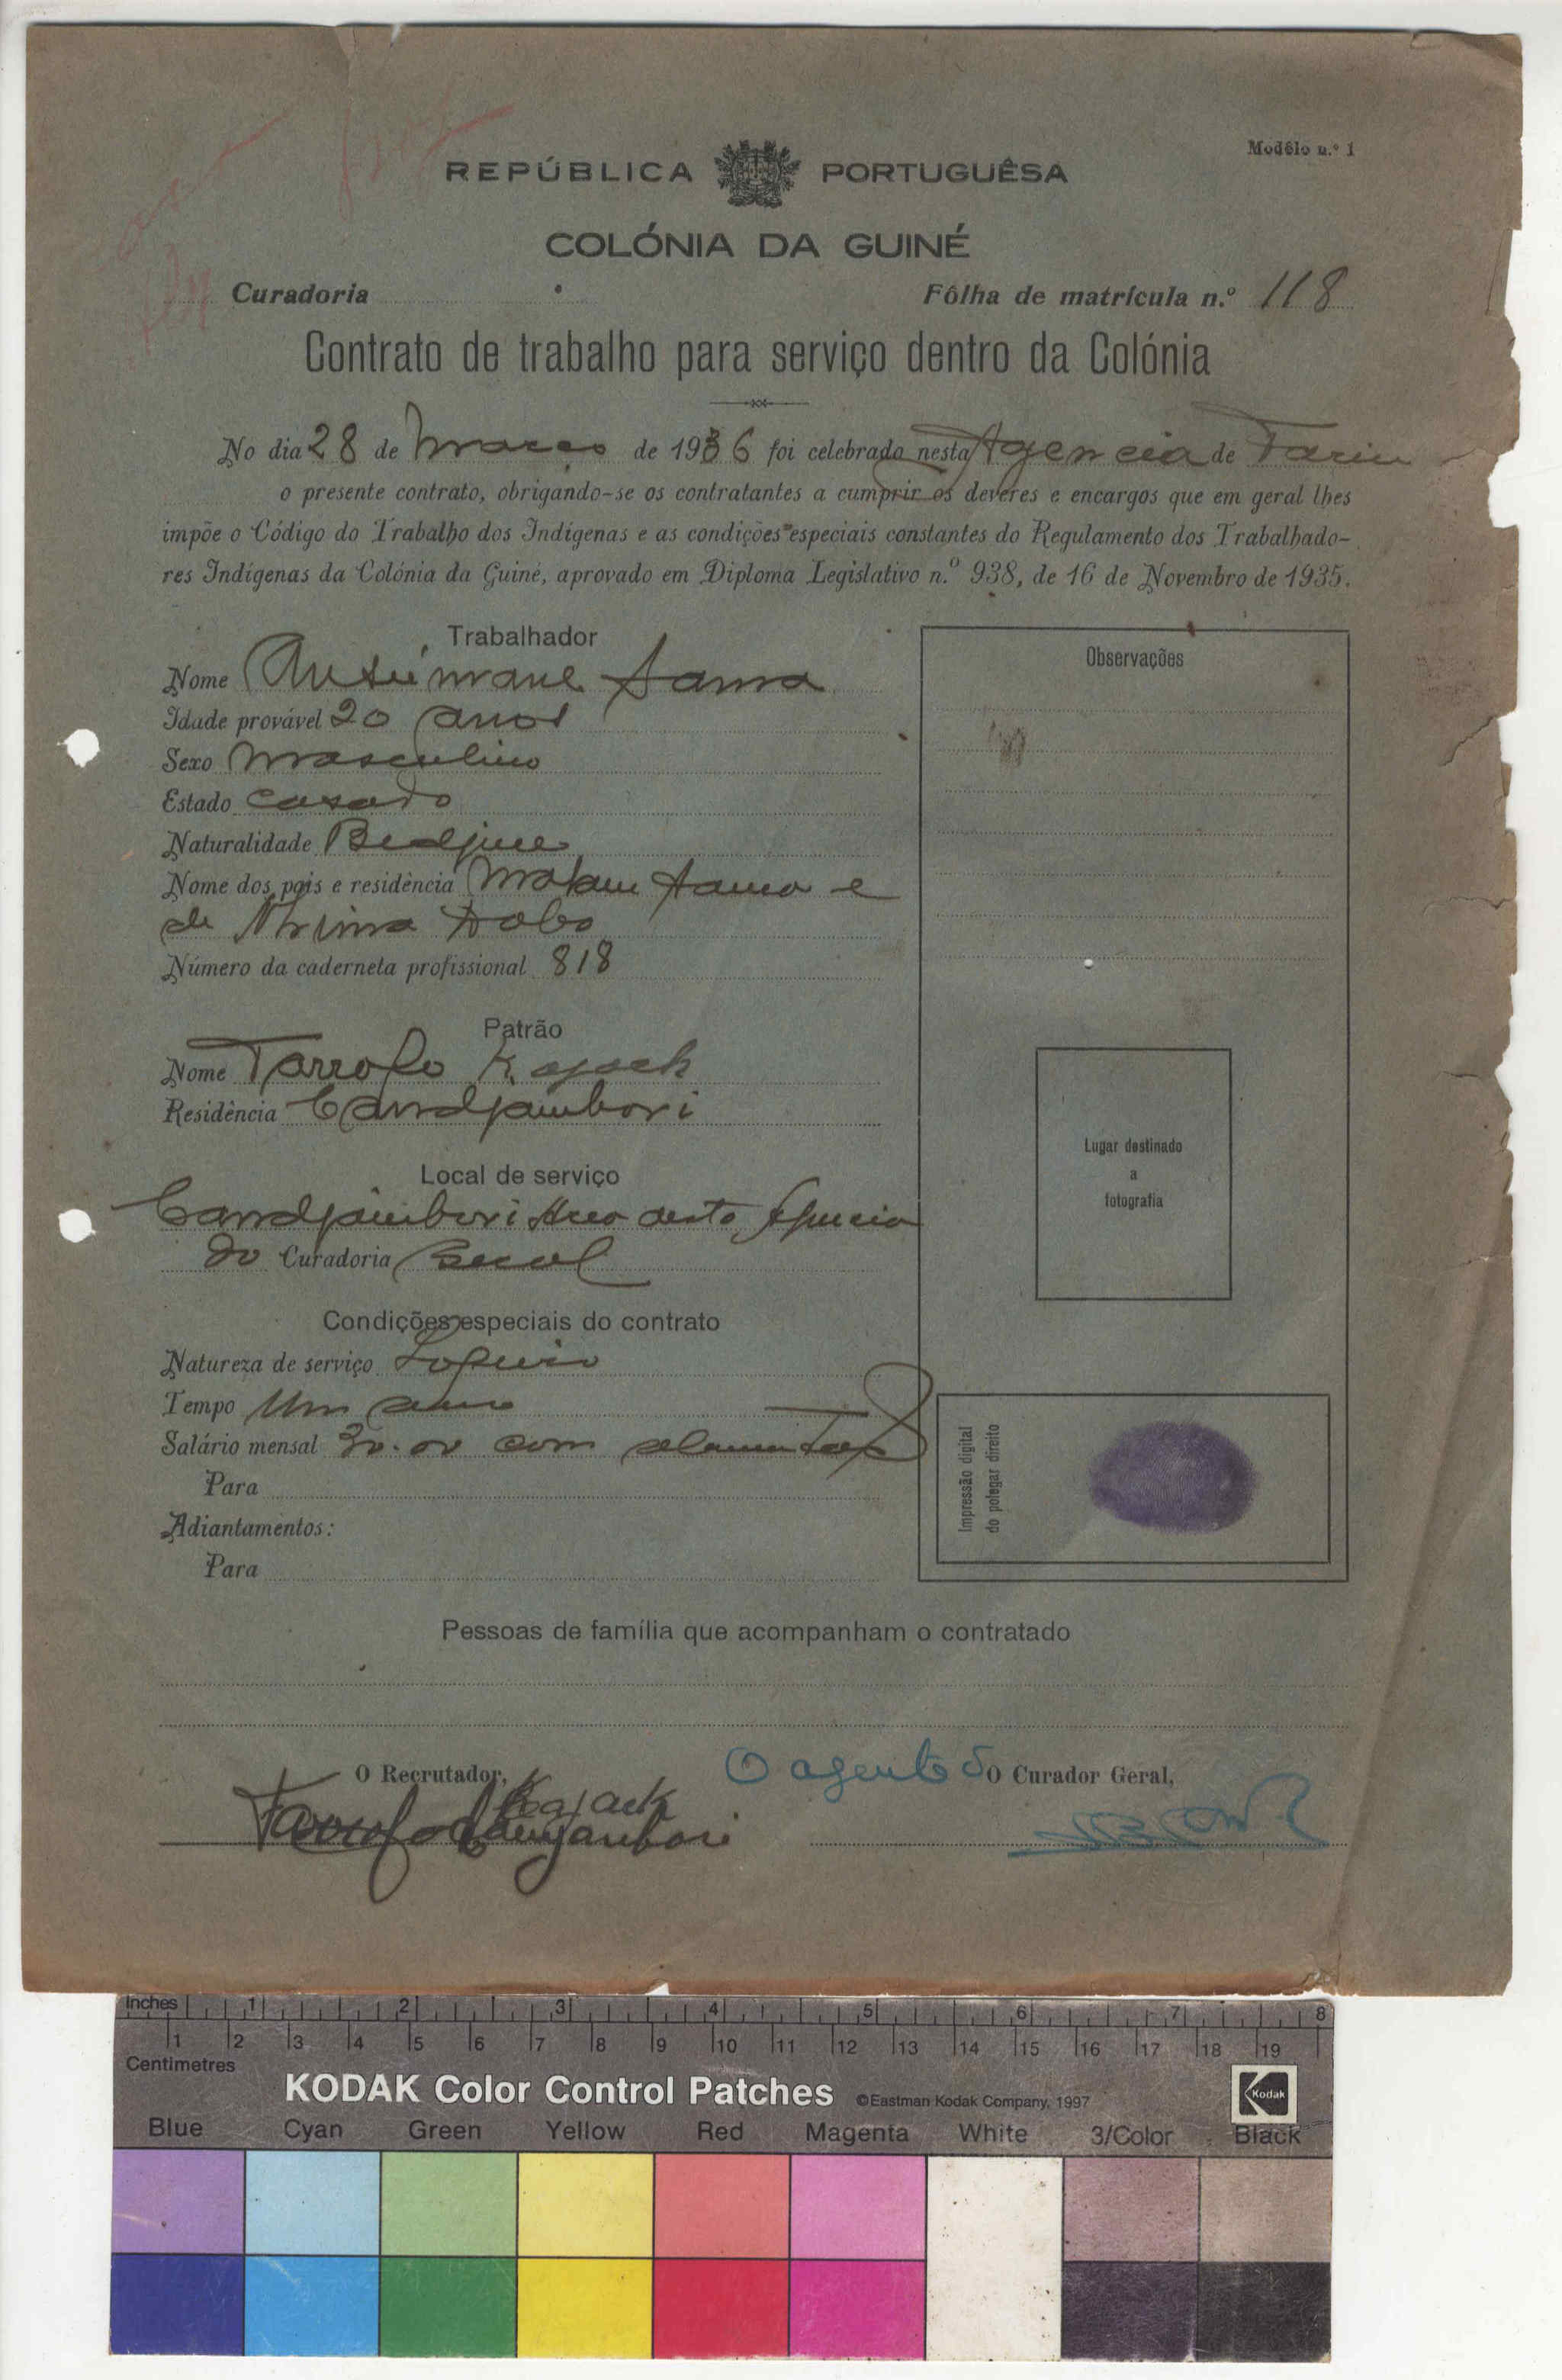 Modêlo n.º 1
REPÚBLICA PORTUGUÊSA
COLÓNIA DA GUINÉ
Curadoria
Fôlha de matrícula n.º 118
Contrato de trabalho para serviço dentro da Colónia
No dia 28 de Março de 1936 foi celebrado nesta Agencia de Farim
o presente contrato, obrigando-se os contratantes a cumprir os deveres e encargos que em geral lhes
impõe o Código do Trabalho dos Indígenas e as condições especiais constantes do Regulamento dos Trabalhado-
res Indígenas da Colónia da Guiné, aprovado em Diploma Legislativo n.º 938, de 16 de Novembro de 1935.
Trabalhador
Nome Sama
Idade provável 20 anos
Sexo Masculino
Estado casado
Naturalidade
Nome dos pais e residência Malam Sama e
de Dabo
Número da caderneta profissional 818
Patrão
Nome Tarrofo Kajack
Residência Candjambori
Local de serviço
Candjambori Area desta Agencia
do Curadoria Geral
Condições especiais do contrato
Natureza de serviço
Tempo Um ano
Salário mensal 30.00 com
Para
Adiantamentos:
Para
Observações
Lugar destinado
a
fotografia
Impressão digital
do polegar direito
Pessoas de família que acompanham o contratado
O Recrutador,
Kajack
O agente do O Curador Geral,
Inches 1 2 3 4 5 6 7 8
1 2 3 4 5 6 7 8 9 10 11 12 13 14 15 16 17 18 19
Centimetres
KODAK Color Control Patches ©Eastman Kodak Company, 1997 Kodak
Blue Cyan Green Yellow Red Magenta White 3/Color Black